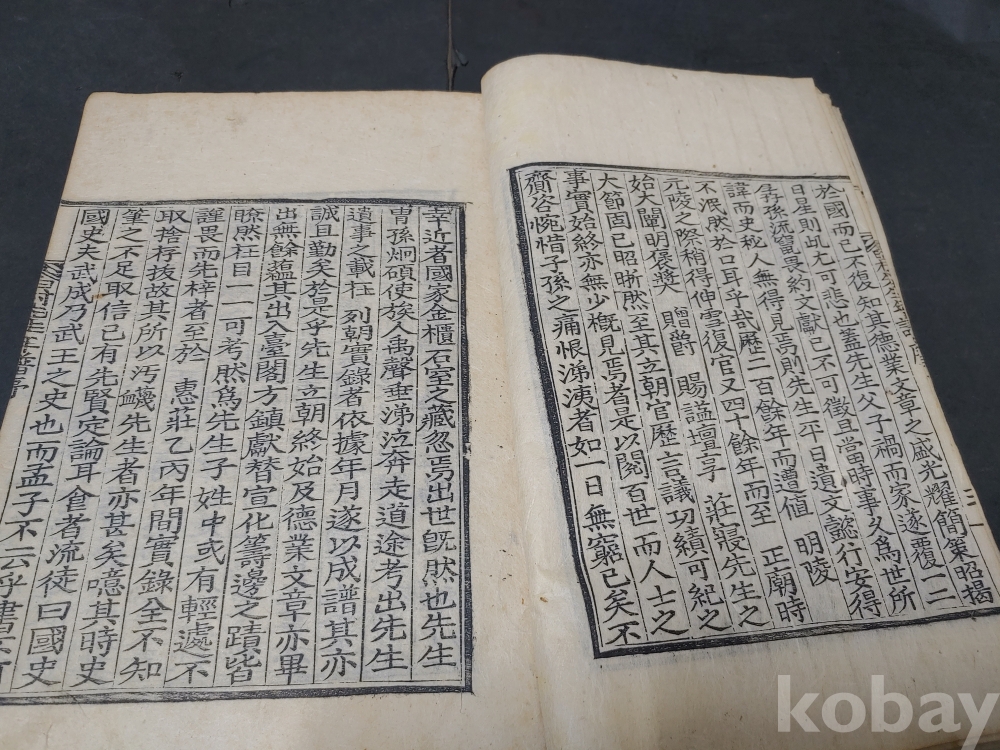 於國而已不復知其德業文章之盛光耀簡策昭揭
日星則此尤可悲也蓋先生父子禍而家遂覆一二
孑孫流竄畏約文獻已不可徵且當時事又爲世所
諱而史秘人無得見焉則先生平日遺文懿行安得
不泯然於口耳乎哉歷二百餘年而遭値 明陵
元陵之際稍得伸雪復官又四十餘年而至 正廟時
始大闡明褒奬 贈爵 賜謚壇享 莊寢先生之
大節固已昭晰然至其立朝官歷言議功績可紀之
事實始終亦無少槪見焉者是以閱百世而人士之
齎咨惋惜子孫之痛恨涕洟者如一日無窮已矣不
幸近者國家金櫃石室之藏忽焉出世旣然也先生
胄孫炯碩使族人禹聲垂涕泣奔走道途考出先生
遺事之載在 列朝實錄者依據年月遂以成譜其亦
誠且勤矣於是乎先生立朝終始及德業文章亦畢
出無餘蘊其出入臺閣方鎭獻替宣化籌邊之蹟皆
瞭然在目一一可考然爲先生子姓中或有輕遽不
謹畏而先梓者至於 惠莊乙丙年間實錄全不知
取捨存拔故其所以汚衊先生者亦甚矣噫其時史
筆之不足取信已有先賢定論耳食者流徒曰國史
國史夫武成乃武王之史也而孟子不云乎書
kobay